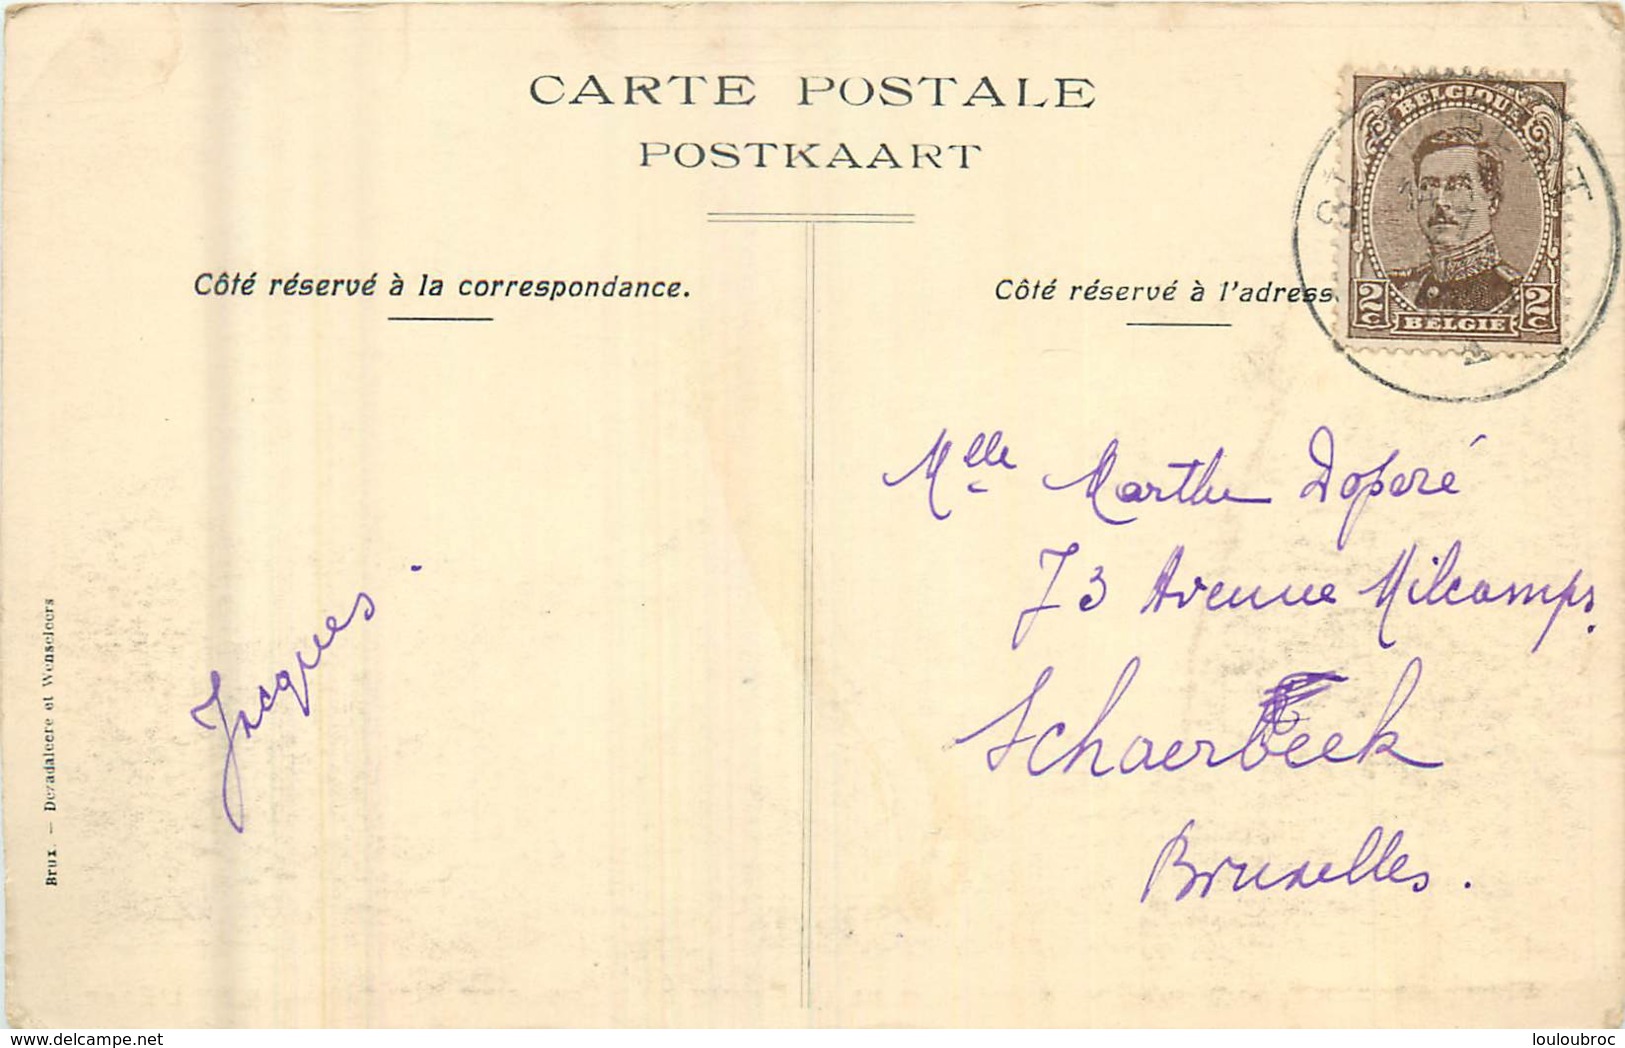 CARTE POSTALE
POSTKAART
Côté réservé à la correspondance.
Côté réservé à l'adress
BELGIQUE
2C 2C
BELGIE
Mlle Marthe Doperé
73 Avenue Milcamps.
Schaerbeek
Bruxelles.
Jacques.
Brux. — Dezadaleere et Wenseleers
delcampe.net
louloubroc